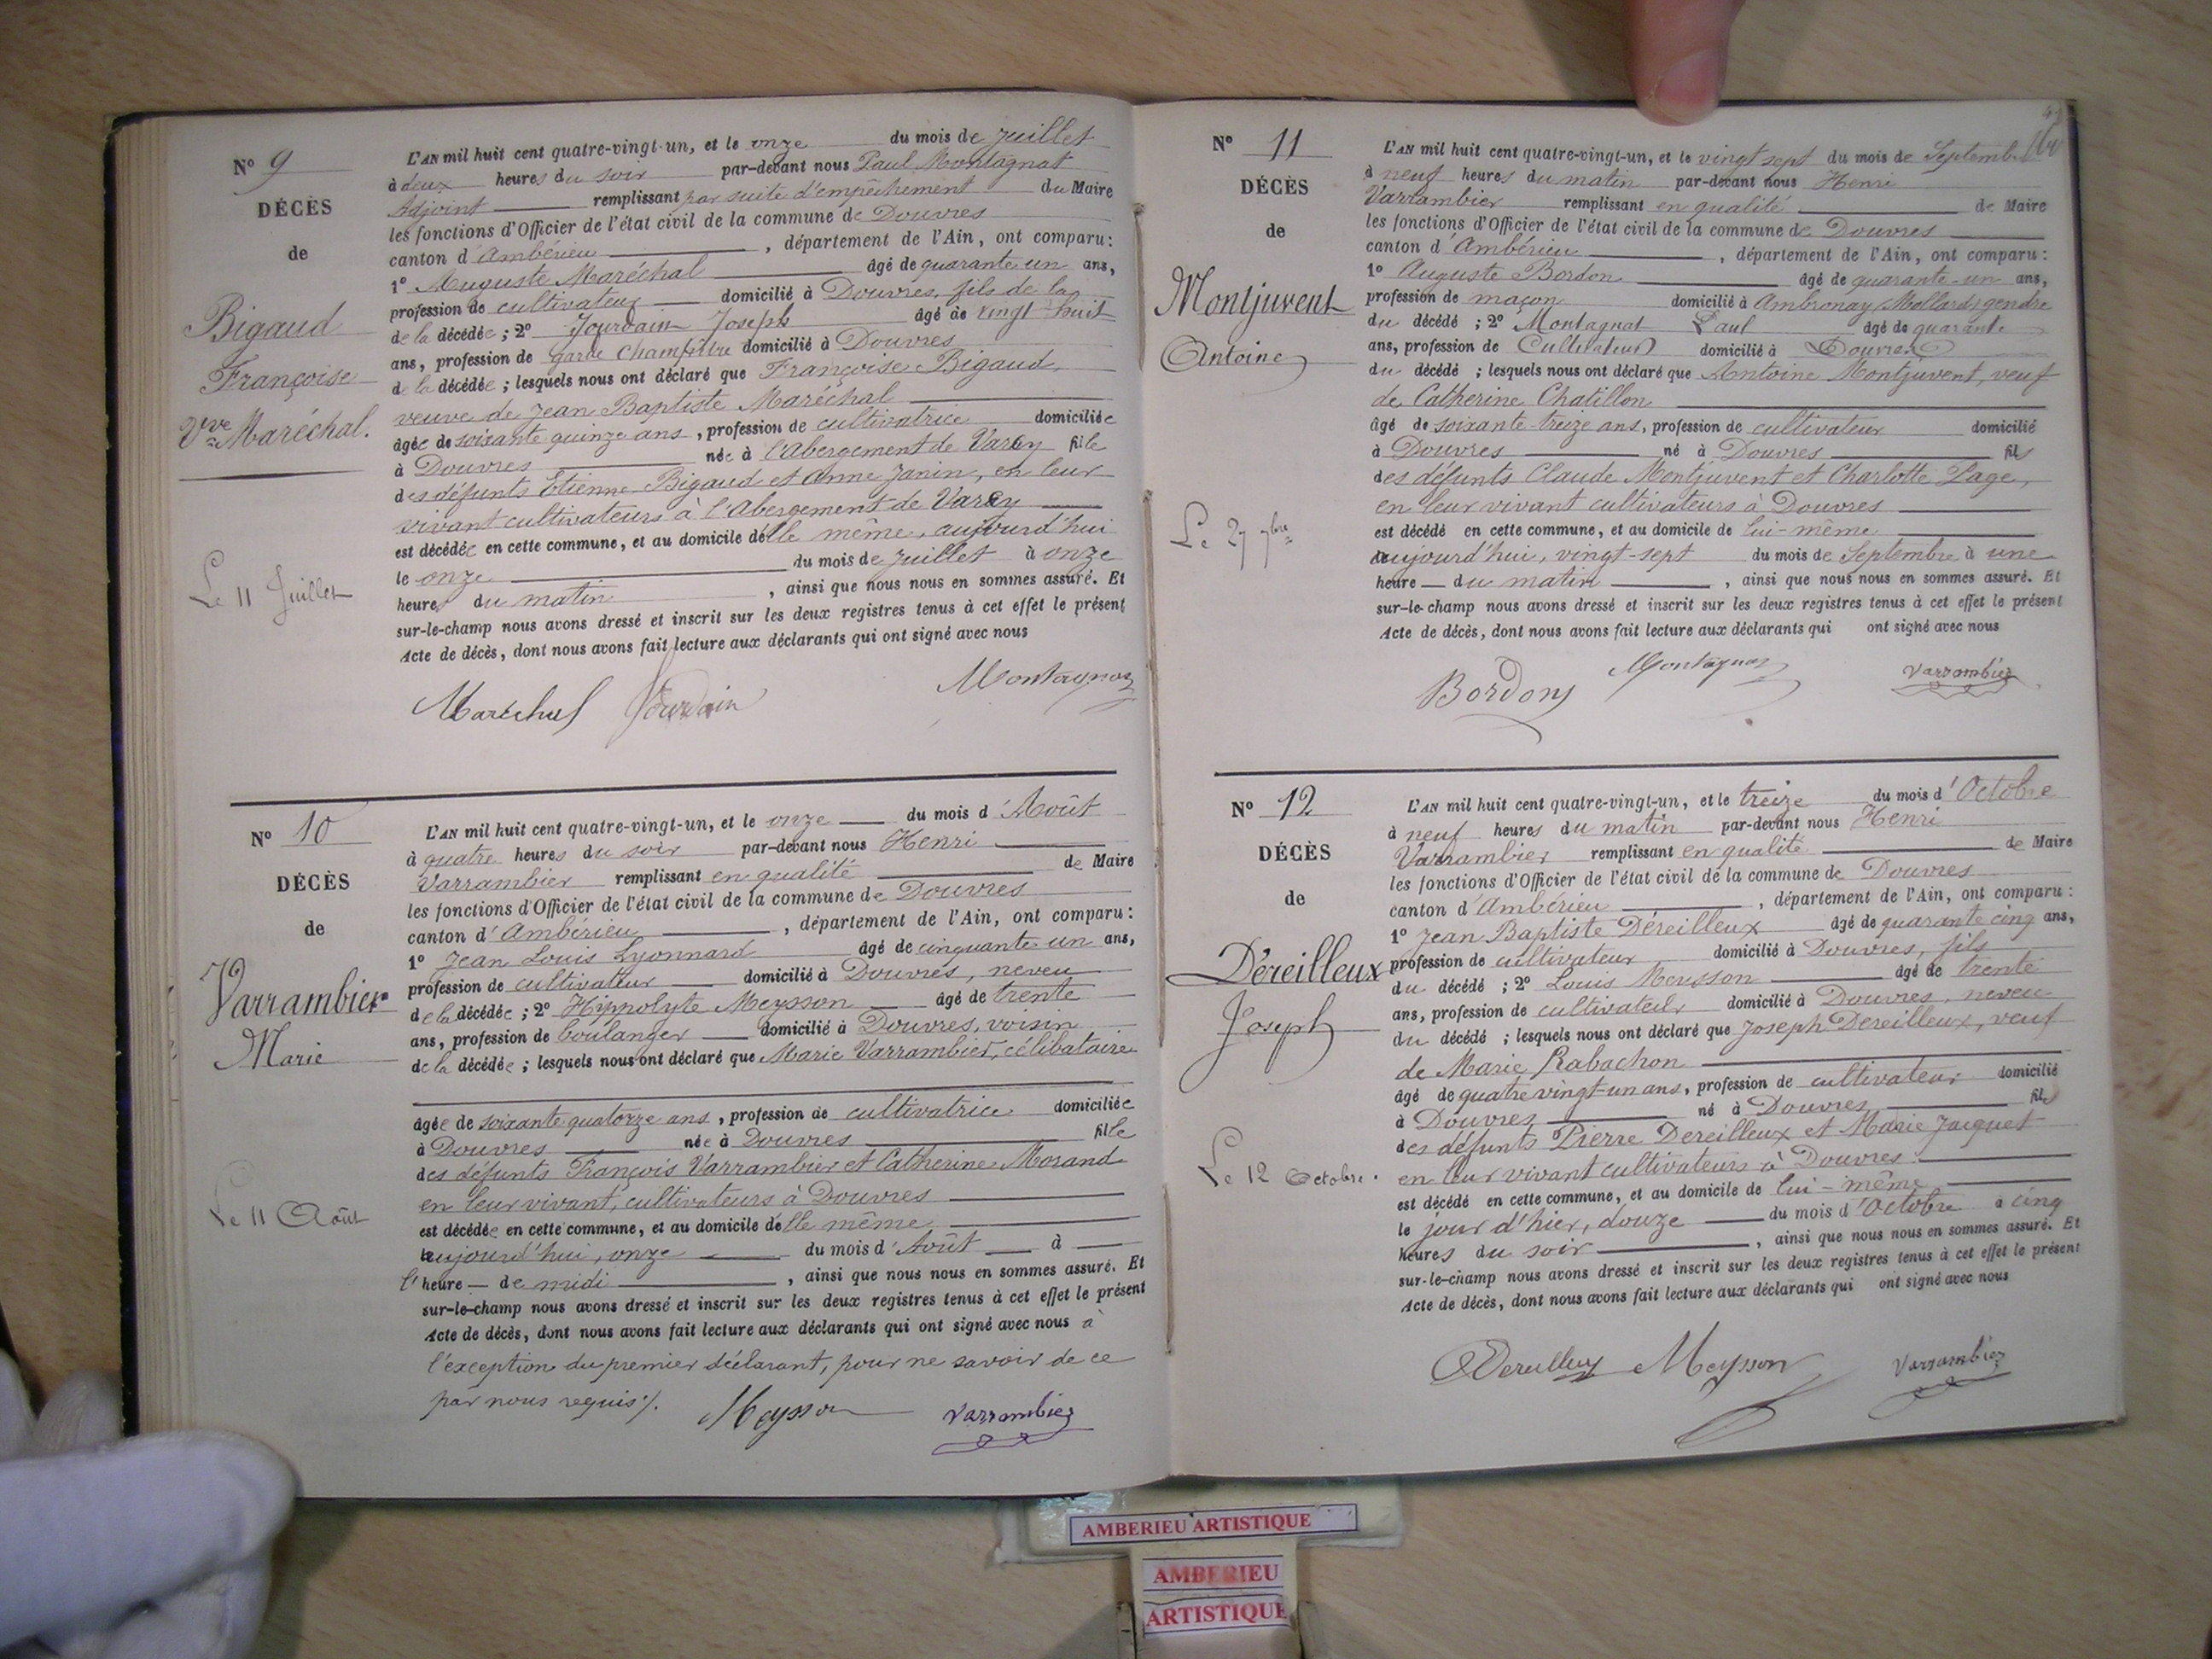 N° 9
DÉCÈS
de
Bigaud
Françoise
Vve Maréchal.
Le 11 Juillet
L'AN mil huit cent quatre-vingt-un, et le onze du mois de Juillet
à deux heures du soir par-devant nous Paul Montagnat
Adjoint remplissant par suite d'empêchement du Maire
les fonctions d'Officier de l'état civil de la commune de Douvres
canton d'Ambérieu, département de l'Ain, ont comparu:
1° Auguste Maréchal âgé de quarante un ans,
profession de cultivateur domicilié à Douvres, fils de la
de la décédée; 2° Jourdain Joseph âgé de vingt-huit
ans, profession de garde champêtre domicilié à Douvres
de la décédée; lesquels nous ont déclaré que Françoise Bigaud,
veuve de Jean Baptiste Maréchal
âgée de soixante quinze ans, profession de cultivatrice domiciliée
à Douvres née à l'Abergement de Varey fille
des défunts Etienne Bigaud et Anne Janin, en leur
vivant cultivateurs à l'Abergement de Varey
est décédée en cette commune, et au domicile d'elle même, aujourd'hui
le onze du mois de Juillet à onze
heures du matin, ainsi que nous nous en sommes assuré. Et
sur-le-champ nous avons dressé et inscrit sur les deux registres tenus à cet effet le présent
Acte de décès, dont nous avons fait lecture aux déclarants qui ont signé avec nous
Maréchal Jourdain Montagnat
N° 10
DÉCÈS
de
Varrambier
Marie
Le 11 Août
L'AN mil huit cent quatre-vingt-un, et le onze du mois d'Août
à quatre heures du soir par-devant nous Henri
Varrambier remplissant en qualité de Maire
les fonctions d'Officier de l'état civil de la commune de Douvres
canton d'Ambérieu, département de l'Ain, ont comparu:
1° Jean Louis Lyonnard âgé de cinquante un ans,
profession de cultivateur domicilié à Douvres, neveu
de la décédée; 2° Hippolyte Meysson âgé de trente
ans, profession de boulanger domicilié à Douvres, voisin
de la décédée; lesquels nous ont déclaré que Marie Varrambier, célibataire
âgée de soixante quatorze ans, profession de cultivatrice domiciliée
à Douvres née à Douvres fille
des défunts François Varrambier et Catherine Morand
en leur vivant, cultivateurs à Douvres
est décédée en cette commune, et au domicile d'elle même
aujourd'hui, onze du mois d'Août à
l'heure de midi, ainsi que nous nous en sommes assuré. Et
sur-le-champ nous avons dressé et inscrit sur les deux registres tenus à cet effet le présent
Acte de décès, dont nous avons fait lecture aux déclarants qui ont signé avec nous à
l'exception du premier déclarant, pour ne savoir de ce
par nous requis ./.
Meysson Varrambier
N° 11
DÉCÈS
de
Montjuvent
Antoine
Le 27 7bre
L'AN mil huit cent quatre-vingt-un, et le vingt sept du mois de Septembre
à neuf heures du matin par-devant nous Henri
Varrambier remplissant en qualité de Maire
les fonctions d'Officier de l'état civil de la commune de Douvres
canton d'Ambérieu, département de l'Ain, ont comparu:
1° Auguste Bordon âgé de quarante-un ans,
profession de maçon domicilié à Ambronay (Mollard) gendre
du décédé; 2° Montagnat Paul âgé de quarante
ans, profession de Cultivateur domicilié à Douvres
du décédé; lesquels nous ont déclaré que Antoine Montjuvent, veuf
de Catherine Chatillon
âgé de soixante-treize ans, profession de cultivateur domicilié
à Douvres né à Douvres fils
des défunts Claude Montjuvent et Charlotte Page,
en leur vivant cultivateurs à Douvres
est décédé en cette commune, et au domicile de lui-même
aujourd'hui, vingt-sept du mois de Septembre à une
heure du matin, ainsi que nous nous en sommes assuré. Et
sur-le-champ nous avons dressé et inscrit sur les deux registres tenus à cet effet le présent
Acte de décès, dont nous avons fait lecture aux déclarants qui ont signé avec nous
Bordon Montagnat Varrambier
N° 12
DÉCÈS
de
Déreilleux
Joseph
Le 12 Octobre.
L'AN mil huit cent quatre-vingt-un, et le treize du mois d'Octobre
à neuf heures du matin par-devant nous Henri
Varrambier remplissant en qualité de Maire
les fonctions d'Officier de l'état civil de la commune de Douvres
canton d'Ambérieu, département de l'Ain, ont comparu:
1° Jean Baptiste Déreilleux âgé de quarante cinq ans,
profession de cultivateur domicilié à Douvres, fils
du décédé; 2° Louis Meysson âgé de trente
ans, profession de cultivateur domicilié à Douvres, neveu
du décédé; lesquels nous ont déclaré que Joseph Dereilleux, veuf
de Marie Rabachon
âgé de quatre vingt-un ans, profession de cultivateur domicilié
à Douvres né à Douvres fils
des défunts Pierre Dereilleux et Marie Jacquet
en leur vivant cultivateurs à Douvres
est décédé en cette commune, et au domicile de lui-même
le jour d'hier, douze du mois d'Octobre à cinq
heures du soir, ainsi que nous nous en sommes assuré. Et
sur-le-champ nous avons dressé et inscrit sur les deux registres tenus à cet effet le présent
Acte de décès, dont nous avons fait lecture aux déclarants qui ont signé avec nous
Meysson Varrambier
AMBERIEU ARTISTIQUE
AMBERIEU
ARTISTIQUE